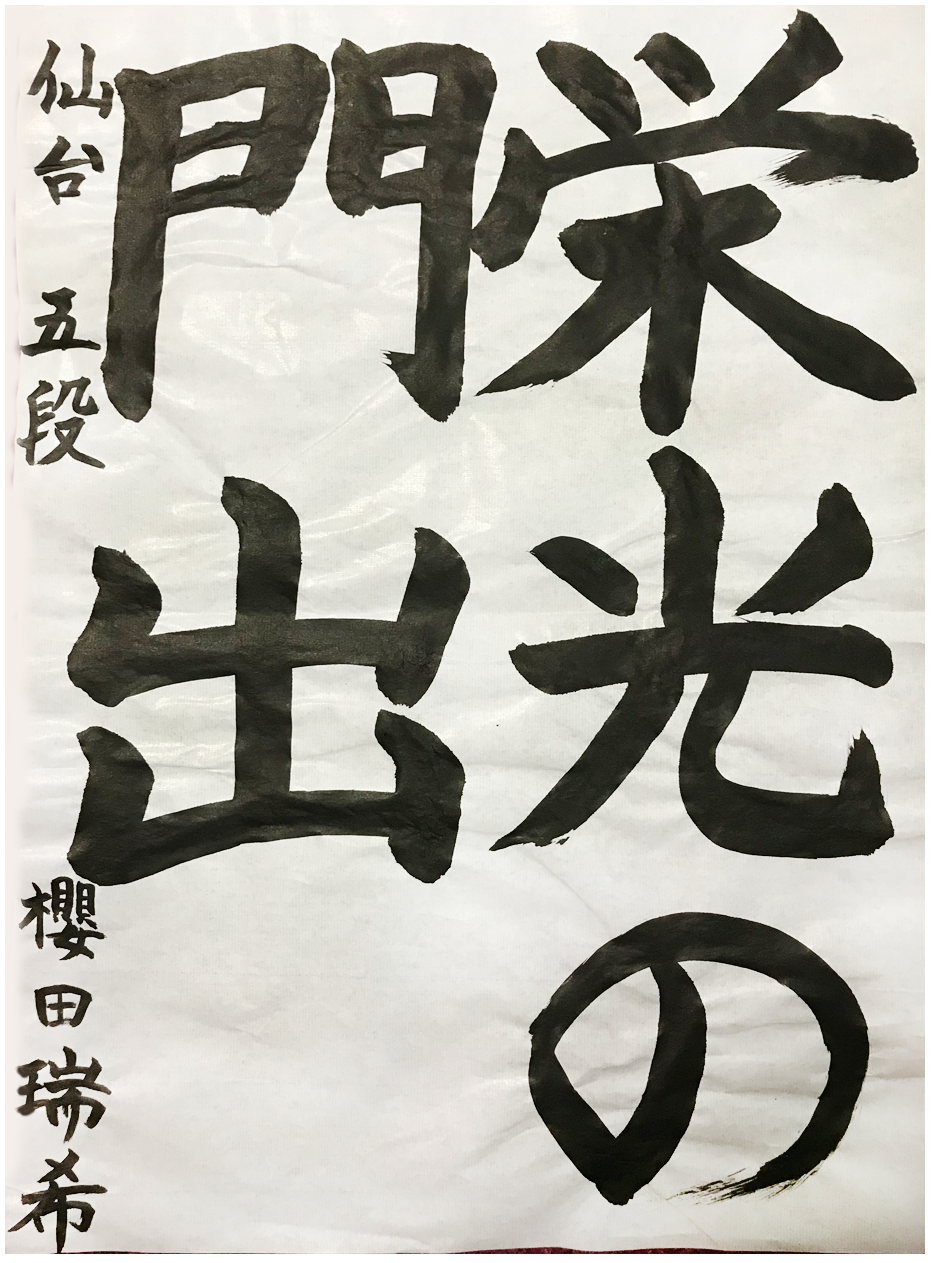 栄光の
門出
仙台 五段 櫻田瑞希